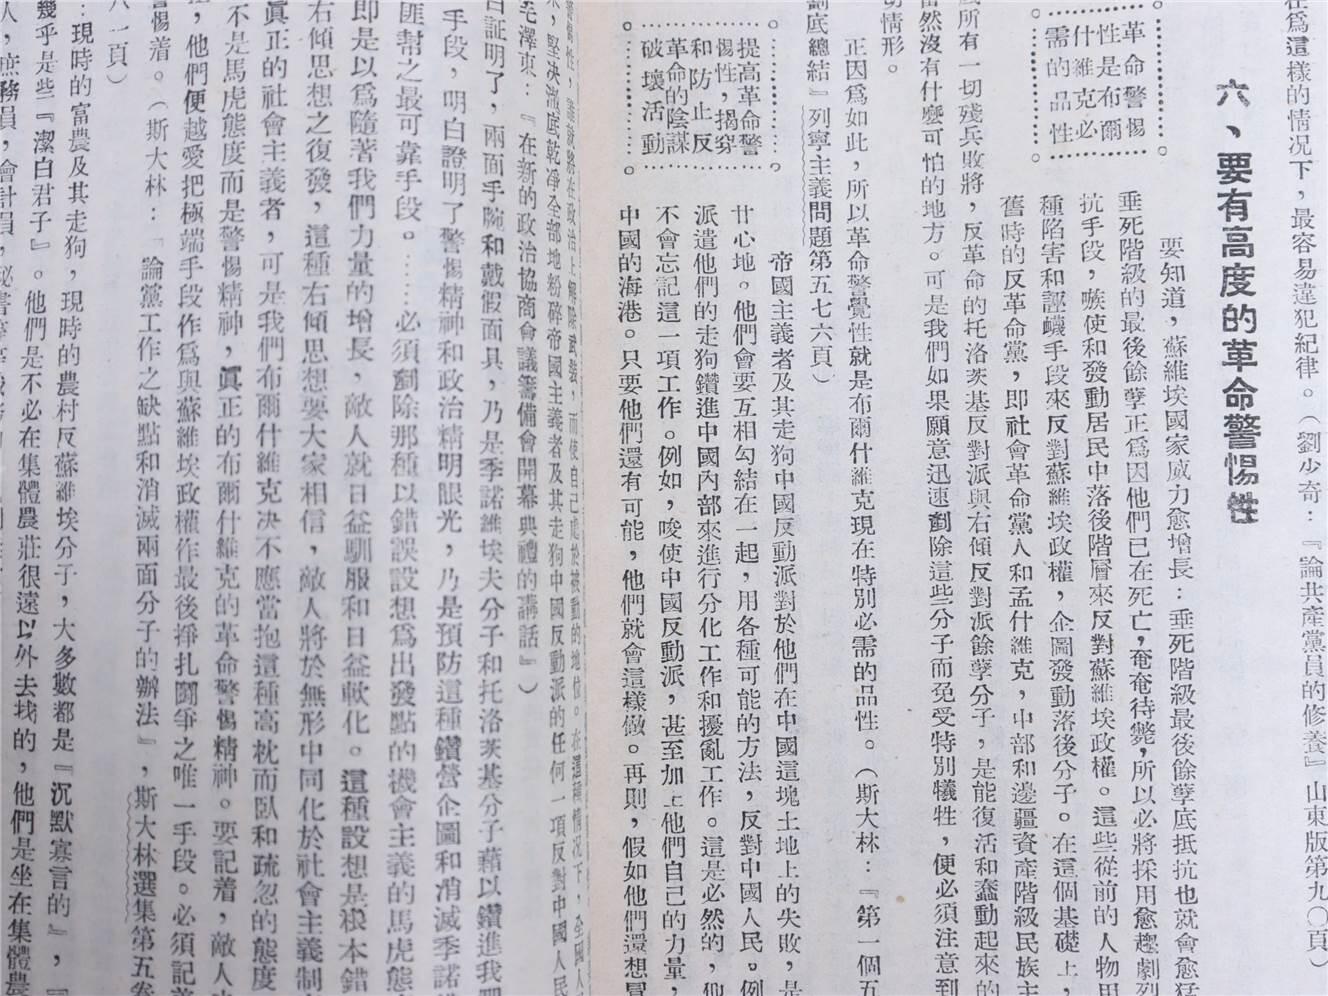 在爲這樣的情况下，最容易違犯紀律。（劉少奇：『論共產黨員的修養』山東版第九〇頁）
六、要有高度的革命警惕性
要知道，蘇維埃國家威力愈增長：垂死階級最後餘孽底抵抗也就會愈猛
革命警惕
性是布爾
什維克必
需的品性
垂死階級的最後餘孽正爲因他們已在死亡，奄奄待斃，所以必將採用愈趨劇烈
抗手段，嗾使和發動居民中落後階層來反對蘇維埃政權。這些從前的人物用
種陷害和誣衊手段來反對蘇維埃政權，企圖發動落後分子。在這個基礎上，
舊時的反革命黨，即社會革命黨人和孟什維克，中部和邊疆資產階級民族主
所有一切殘兵敗將，反革命的托洛茨基反對派與右傾反對派餘孽分子，是能復活和蠢動起來的
當然沒有什麼可怕的地方。可是我們如果願意迅速剷除這些分子而免受特別犧牲，便必須注意到
情形。
正因爲如此，所以革命警覺性就是布爾什維克現在特別必需的品性。（斯大林：『第一個五
劃底總結』列寧主義問題第五七六頁）
提高革命警
惕性，揭穿
和防止反
革命的陰謀
破壞活動
帝國主義者及其走狗中國反動派對於他們在中國這塊土地上的失敗，是
甘心地。他們會要互相勾結在一起，用各種可能的方法，反對中國人民。例
派遣他們的走狗鑽進中國內部來進行分化工作和擾亂工作。這是必然的，他
不會忘記這一項工作。例如，唆使中國反動派，甚至加上他們自己的力量，
中國的海港。只要他們還有可能，他們就會這樣做。再則，假如他們還想冒
警惕性，誰就將在政治上解除武裝，而使自己處於被動的地位。在這種情况下，全國人
堅决澈底乾淨全部地粉碎帝國主義者及其走狗中國反動派的任何一項反對中國人民
毛澤東：『在新的政治協商會議籌備會開幕典禮的講話』）
白証明了，兩面手腕和戴假面具，乃是季諾維埃夫分子和托洛茨基分子藉以鑽進我
手段，明白證明了警惕精神和政治精明眼光，乃是預防這種鑽營企圖和消滅季諾
匪幫之最可靠手段。……必須剷除那種以錯誤設想爲出發點的機會主義的馬虎態
即是以爲隨著我們力量的增長，敵人就日益馴服和日益軟化。這種設想是根本錯
右傾思想之復發，這種右傾思想要大家相信，敵人將於無形中同化於社會主義制
眞正的社會主義者，可是我們布爾什維克决不應當抱這種高枕而臥和疏忽的態度
不是馬虎態度而是警惕精神，眞正的布爾什維克的革命警惕精神。要記着，敵人
，他們便越愛把極端手段作爲與蘇維埃政權作最後掙扎鬪爭之唯一手段。必須記
惕着。（斯大林：「論黨工作之缺點和消滅兩面分子的辦法」，斯大林選集第五卷
八一頁）
：現時的富農及其走狗，現時的農村反蘇維埃分子，大多數都是『沉默寡言的』，『
幾乎是些『潔白君子』。他們是不必在集體農莊很遠以外去找的，他們是坐在集體農
人，庶務員，會計員，秘書等